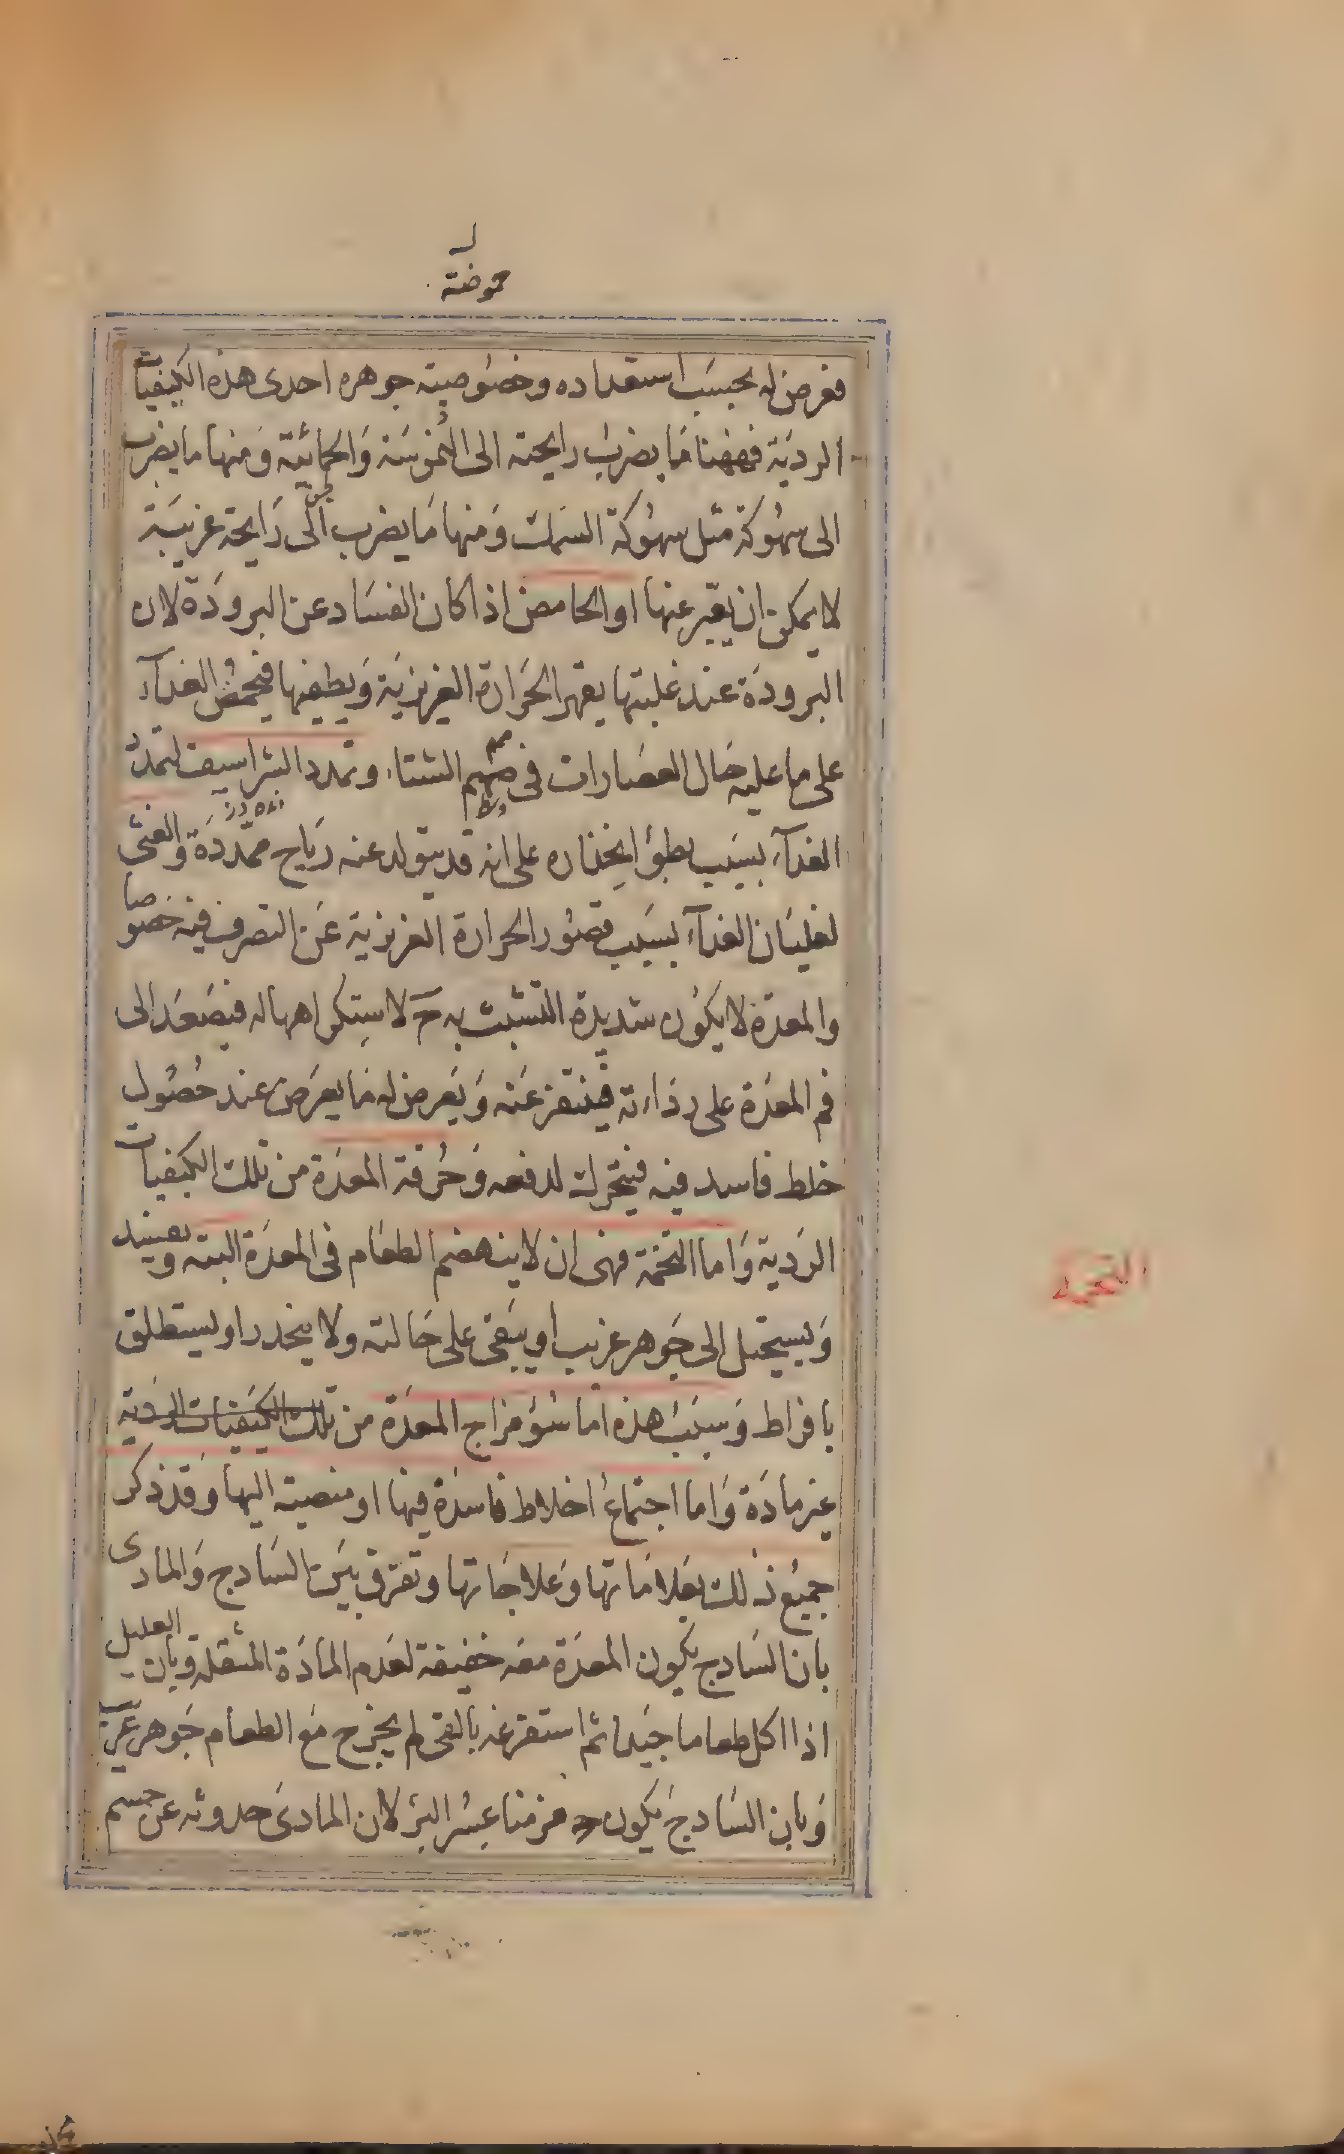 حموضة
فعرض له بحسب استعداده وخصوصية جوهره احدى هذه الكيفيات
الردية فههنا ما يضرب رايحته الى والحمائية ومنها ما يضرب
الى سهوكة مثل سهوكة السمك ومنها ما يضرب الى رايحة غريبة
لا يمكن ان يعبر عنها او الحامض اذا كان الفساد عن البرودة لان
البرودة عند غلبتها يقهر الحرارة الغريزية ويطفيها فيحمض الغذآء
على ما عليه حال العصارات فى صميم الشتاء وتمدد الشراسيف لتمدد
الغذآء بسبب بطؤ انحذاره على انه قد يتولد عنه رياح ممددة والغثى
لغليان الغذآء بسبب قصور الحرارة الغريزية عن التصرف فيه خصوصا
والمعدة لا يكون شديدة التشبث به ح لا ستكراهها له فيصعد الى
فم المعدة على رداءته فينتفر عنه ويعرض له ما يعرض عند حصول
خلط فاسد فيه فيتحرك لدفعه وحرقة المعدة من تلك الكيفيات
الردية واما التخمة فهى ان لا ينهضم الطعام فى المعدة البتة ويفسد
التخمة
ويستحيل الى جوهر غريب او يبقى على حالته ولا ينحدر او يستطلق
بافراط وسبب هذه اما سؤ مزاج المعدة من تلك الكيفيات الردية
غير مادة واما اجتماع اخلاط فاسدة فيها او منصبة اليها وقد ذكر
جميع ذلك بعلاماتها وعلاجاتها وتفرق بين السادج والمادى
بان السادج يكون المعدة معه خفيفة لعدم المادة المثقلة وبان العليل
اذا اكل طعاما جيدا ثم استفرغه بالقى لم يخرج مع الطعام جوهر غريب
وبان السادج يكون مزمنا عسر البرء لان المادى حدوثه عن جسم